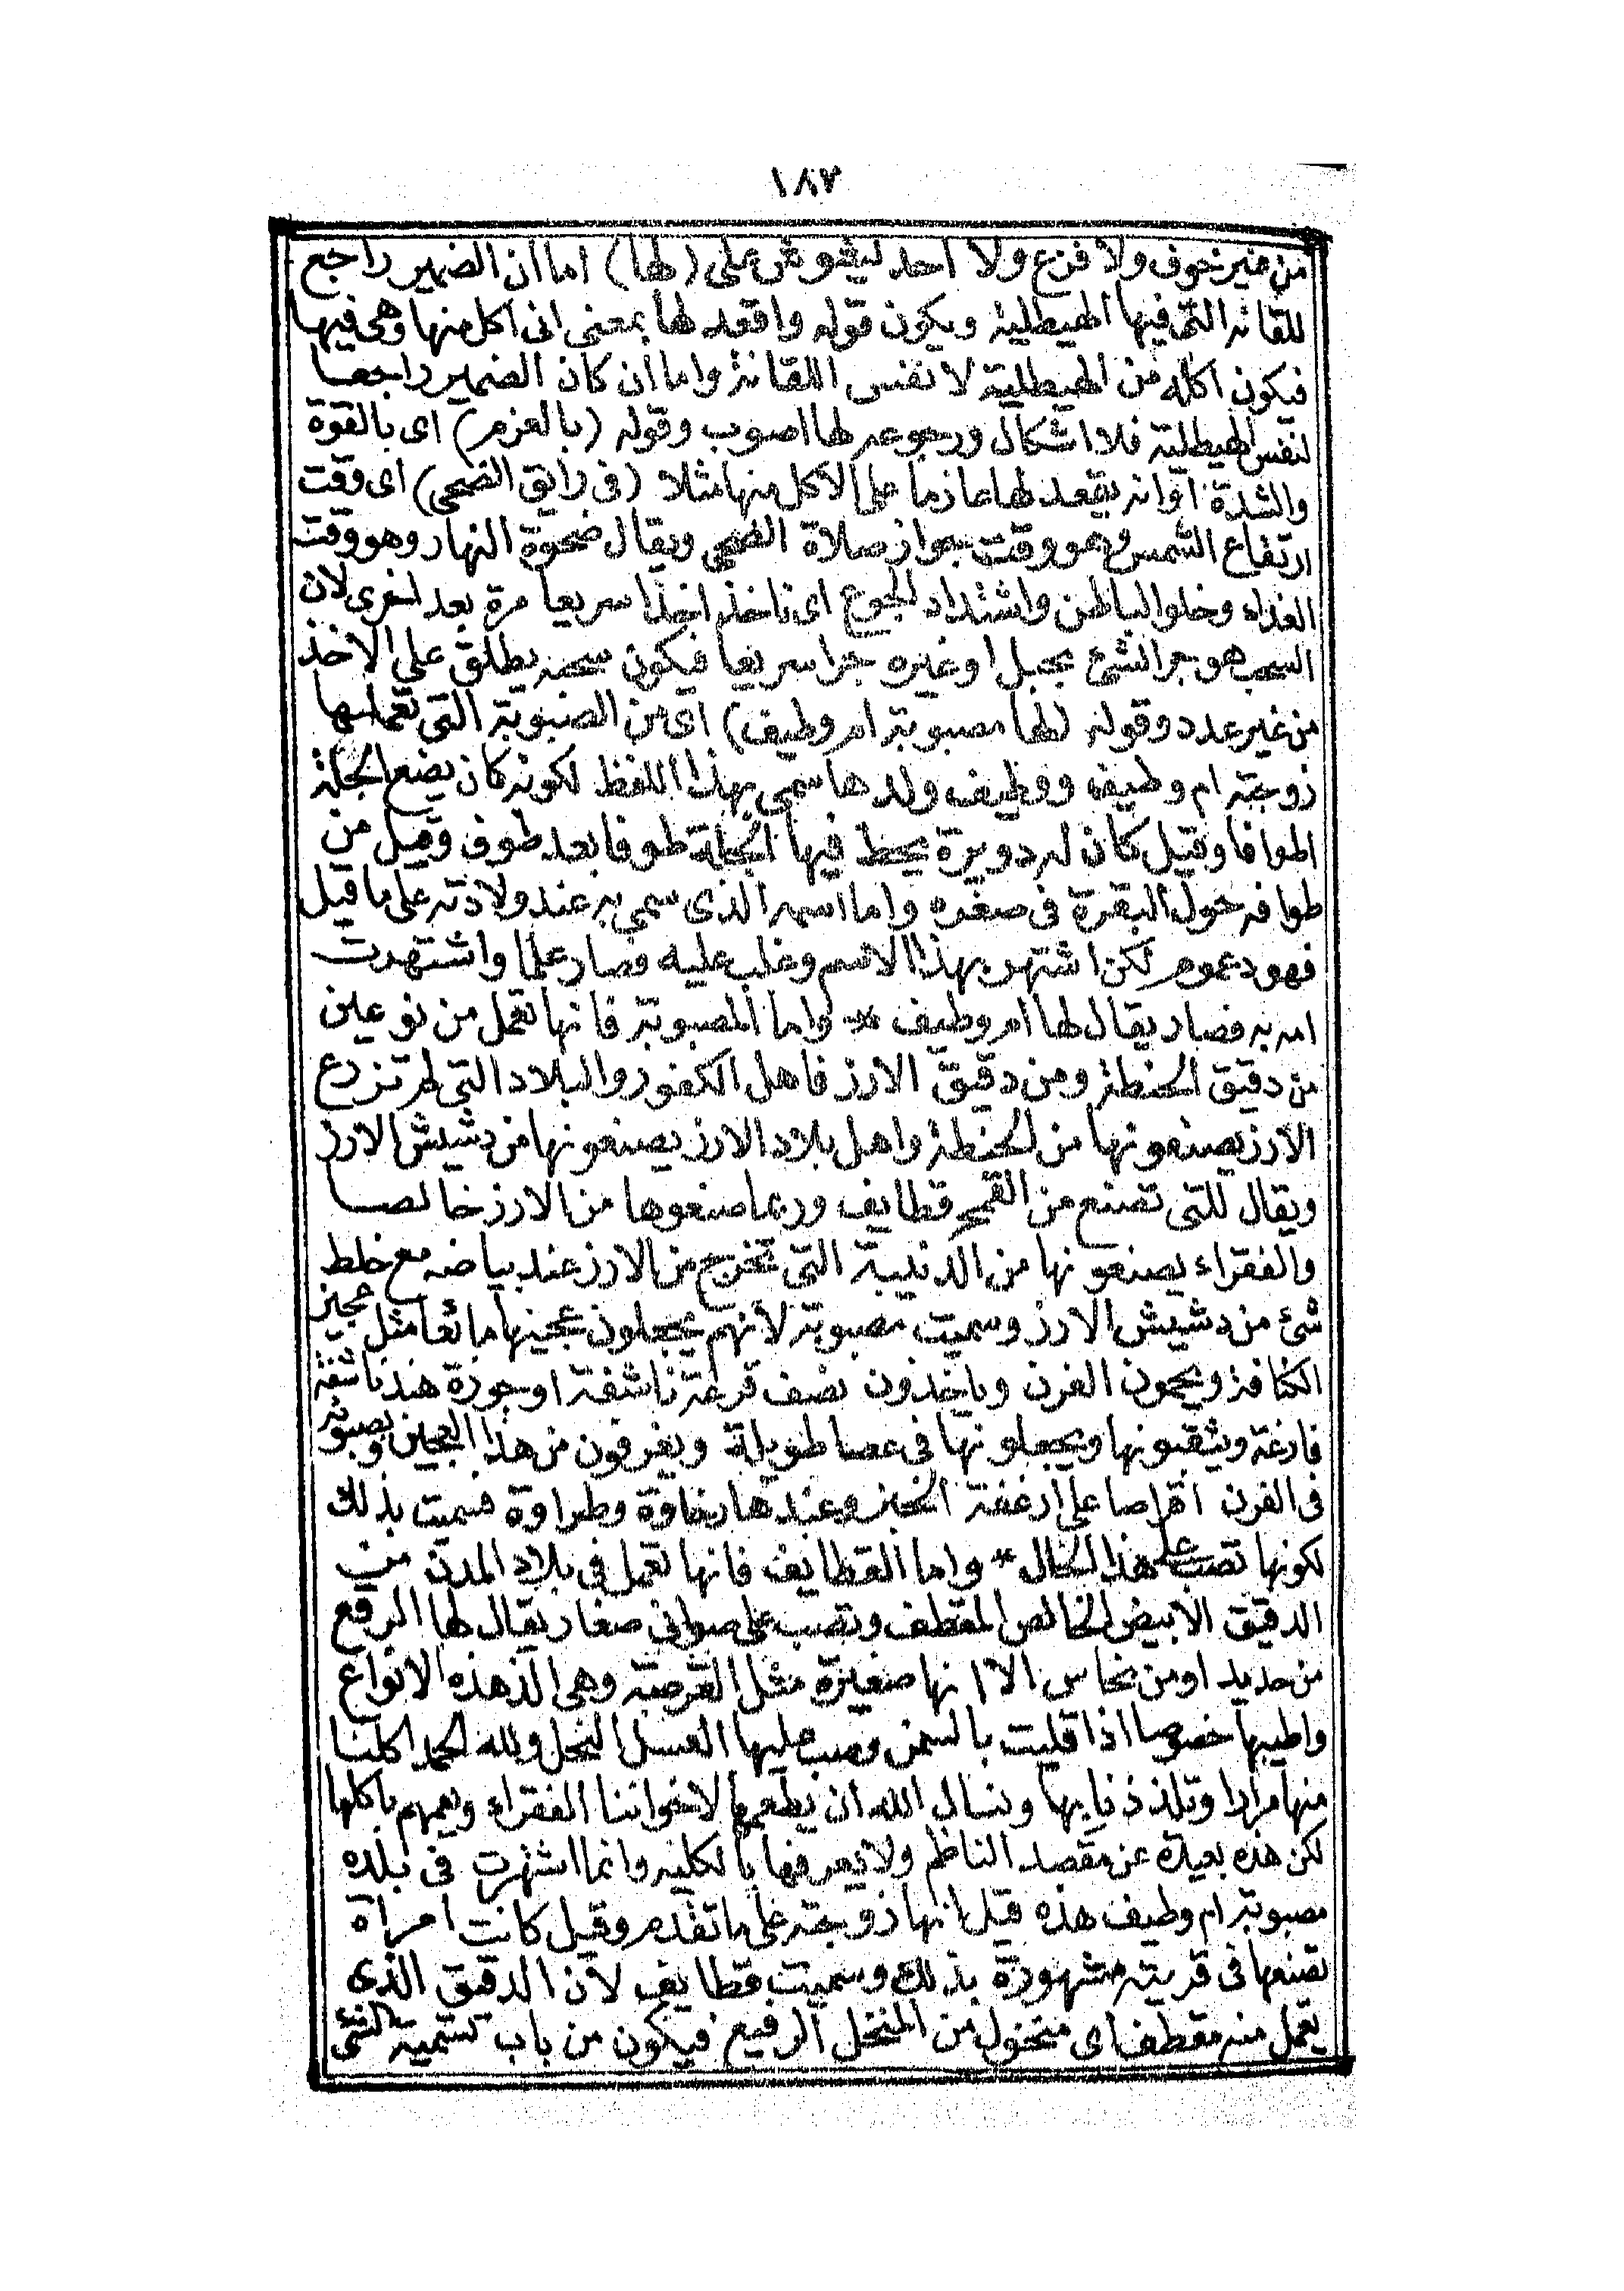 ١٨٧
من غير خوف ولا فزع ولا احد يشوش على (لها) اما ان الضمير راجع
للقانه التى فيها الهيطلية ويكون قوله واقعد لها بمعنى انى اكل منها وهى فيها
فيكون اكله من الهيطلية لا نفس اللقانة واما ان كان الضمير راجعا
لنفس الهيطلية فلا اشكال ورجوعه لها اصوب وقوله (بالعزم) اى بالقوة
والشدة او انه يقعد لها عازما على الاكل منها مثلا (فى رايق الضحى) اى وقت
ارتفاع الشمس وهو وقت جواز صلاة الضحى ويقال ضحوة النهار وهو وقت
الغداء وخلو الباطن واشتداد الجوع اى ناخذ اخذا سريعا مرة بعد اخرى لان
السحب هو جر الشئ بحبل او غيره جرا سريعا فيكون سحبه يطلق على الاخذ
من غير عدد وقوله (لها مصبوبة ام وطيف) اى من الصبوبة التى تعملها
زوجته ام وطيف ووطيف ولدها سمى بهذا اللفظ لكونه كان يضع الجلة
الموافا وقيل كان له دويرة يحط فيها الجلة طوفا بعد طوف وقيل من
طوافه حول البقرة فى صغره واما اسمه الذى سمى به عند ولادته على ما قيل
فهو دعموم لكن اشتهر بهذا الاسم وغلب عليه وصار علما واشتهرت
امه به فصار يقال لها ام وطيف * واما المصبوبة فانها تعمل من نوعين
من دقيق الحنطة ومن دقيق الارز فاهل الكفور والبلاد التى لم تزرع
الارز يصنعونها من الحنطة واهل بلاد الارز يصنعونها من دشيش الارز
ويقال للتى تصنع من القمح قطايف وربما صنعوها من الارز خالصا
والفقراء يصنعونها من الدنيبة التى تخرج من الارز عند بياضه مع خلط
شئ من دشيش الارز وسميت مصبوبة لأنهم يجعلون عجينها مائعا مثل عجين
الكنافة ويحمون الفرن وياخذون نصف قرعة ناشفة او جوزة هند ناشفة
فارغة ويثقبونها ويجعلونها فى عصا طويلة ويغرفون من هذا العجين ويصبونه
فى الفرن اقراصا على ارغفة الخبز وعندها رخاوة وطراوة فسميت بذلك
لكونها تصب على هذا الحال * واما القطايف فانها تعمل فى بلاد المدن من
الدقيق الابيض الخالص المقطف وتصب على صوانى صغار يقال لها الرقع
من حديد او من نحاس الا انها صغيرة مثل القرصة وهى الذ هذه الانواع
واطيبها خصوصا اذا قليت بالسمن وصب عليها العسل النحل ولله الحمد اكلنا
منها مرارا وتلذذنا بها ونسال الله ان يطعمها لاخواننا الفقراء ويعمهم باكلها
لكن هذه بعيدة عن مقصد الناظم ولا يعرفها بالكلية وانما اشتهرت فى بلده
مصبوبة ام وطيف هذه قيل انها زوجته على ما تقدم وقيل كانت امراة
تصنعها فى قريته مشهورة بذلك وسميت قطايف لان الدقيق الذى
تعمل منه مقطف اى منخول من المنخل الرفيع فيكون من باب تسمية الشئ